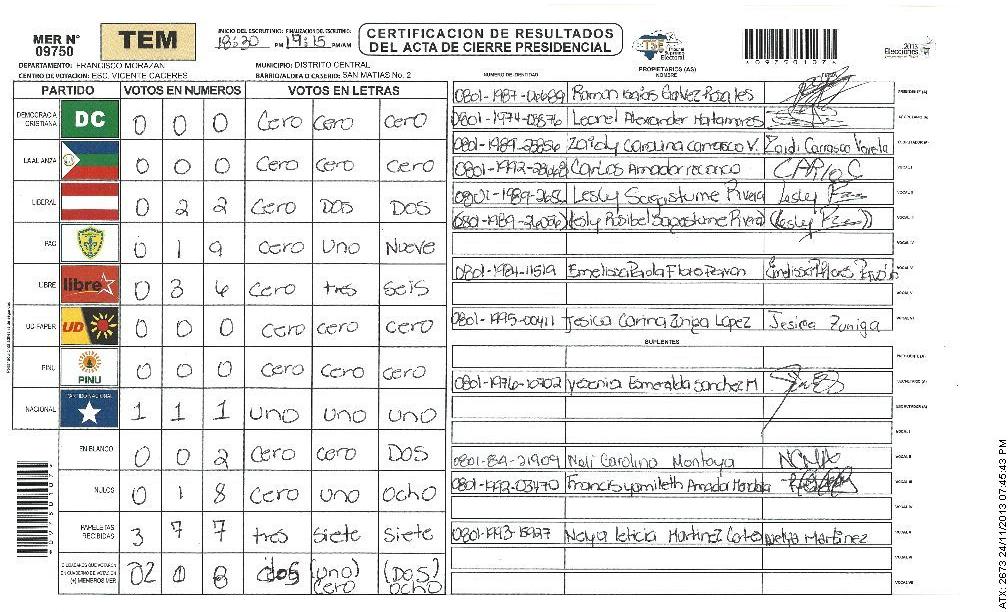 MER N° 09750
TEM
INICIO DEL ESCRUTINIO: FINALIZACION DEL ESCRUTINIO:
18:30 PM 19:15 PM/AM
CERTIFICACION DE RESULTADOS
DEL ACTA DE CIERRE PRESIDENCIAL
TSE Tribunal Supremo Electoral
2013 Elecciones
DEPARTAMENTO: FRANCISCO MORAZAN
MUNICIPIO: DISTRITO CENTRAL
CENTRO DE VOTACION: ESC. VICENTE CACERES
BARRIO/ALDEA O CASERIO: SAN MATIAS No. 2
NUMERO DE IDENTIDAD
PROPIETARIOS (AS)
NOMBRE
PARTIDO VOTOS EN NUMEROS VOTOS EN LETRAS
DEMOCRACIA CRISTIANA DC 0 0 0 Cero Cero Cero
LA ALIANZA 0 0 0 Cero Cero Cero
LIBERAL 0 2 2 Cero DOS DOS
PAC 0 1 9 Cero Uno Nueve
LIBRE libre 0 3 6 Cero tres Seis
UD-FAPER UD 0 0 0 Cero Cero Cero
PINU PINU 0 0 0 Cero Cero Cero
NACIONAL PARTIDO NACIONAL 1 1 1 Uno Uno Uno
EN BLANCO 0 0 2 Cero Cero DOS
NULOS 0 1 8 Cero uno Ocho
PAPELETAS RECIBIDAS 3 7 7 tres Siete Siete
CIUDADANOS QUE VOTARON EN CUADERNO DE VOTACION (+) MIEMBROS MER 02 0 8 dos (Uno) Cero (Dos) Ocho
0801-1987-00689 Galvez PRESIDENTE (A)
0801-1974-03876 Leonel Alexander Matamoros SECRETARIO (A)
0801-1989-25856 Zoidy Carolina Carrasco V. Zoidi Carrasco ESCRUTADOR (A)
0801-1992-23668 Carlos Amador VOCAL I
Lesly Sagastume Rivera Lesly VOCAL II
Lesly Rosibel Sagastume Rivera (Lesly VOCAL III
VOCAL IV
0801-1984-11519 Flores VOCAL V
VOCAL VI
0801-1995-00411 Jesica Carina Zuniga Lopez Jesica Zuniga VOCAL VII
SUPLENTES
PRESIDENTE (A)
0801-1976-10702 Yesenia Esmeralda Sanchez M SECRETARIO (A)
ESCRUTADOR (A)
VOCAL I
0801-84-21909 Noli Carolina Montoya VOCAL II
0801-1992-03470 Francis yamileth Amada VOCAL III
VOCAL IV
0801-1993-15927 Leticia Martinez Martinez VOCAL V
VOCAL VI
VOCAL VII
ATX: 2673 24/11/2013 07:45:43 PM